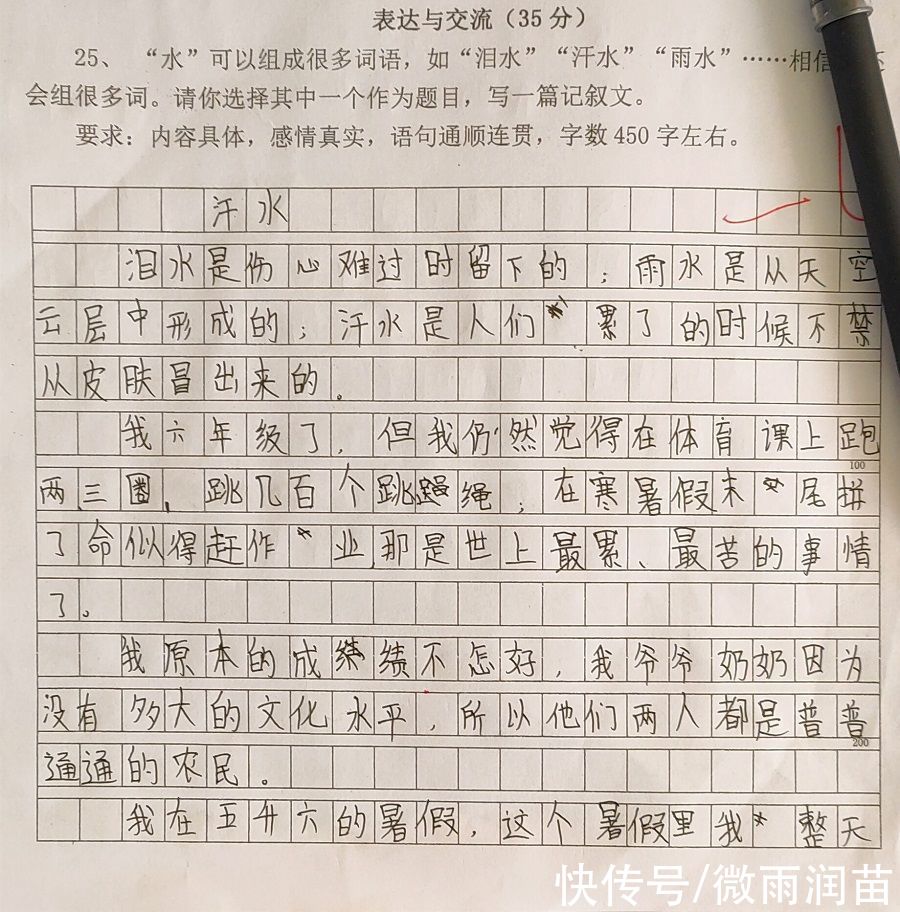 表达与交流（35分）
25、“水”可以组成很多词语，如“泪水”“汗水”“雨水”……相信
会组很多词。请你选择其中一个作为题目，写一篇记叙文。
要求：内容具体，感情真实，语句通顺连贯，字数450字左右。
汗水
泪水是伤心难过时留下的；雨水是从天空
云层中形成的；汗水是人们累了的时候不禁
从皮肤冒出来的。
我六年级了，但我仍然觉得在体育课上跑
100
两、三圈，跳几百个跳绳；在寒暑假末尾拼
了命似得赶作业，那是世上最累、最苦的事情
了。
我原本的成绩不怎好，我爷爷奶奶因为
没有多大的文化水平，所以他们两人都是普普
200
通通的农民。
我在五升六的暑假，这个暑假里我整天
快传号/微雨润苗